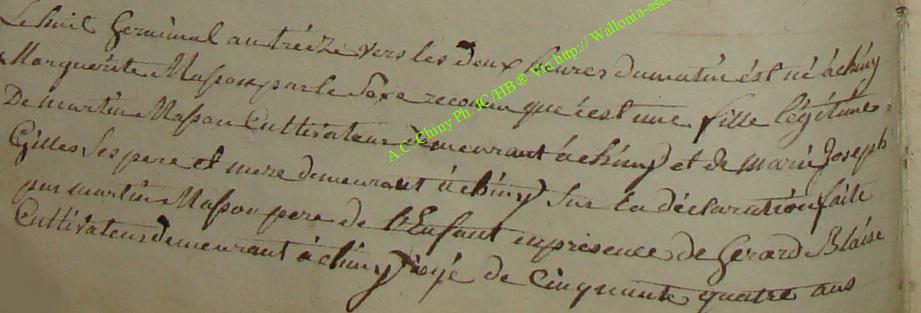 Le huit Germinal an treize vers les deux heures du matin ést né à chiny
Marguérite Masson par le Sexe reconu que c'est une fille légitime
De martin Masson Cultivateur demeurant à chiny et de marie Joseph
Gilles Ses pere et mere demeurant à chiny Sur la déclaration faite
par martin Masson pere de l'Enfant en présence de Gerard Blaise
Cultivateur demeurant à chiny agé de Cinquante quatre ans
A.C. Chiny Ph. JC/HB® Via http://Wallonia-asb